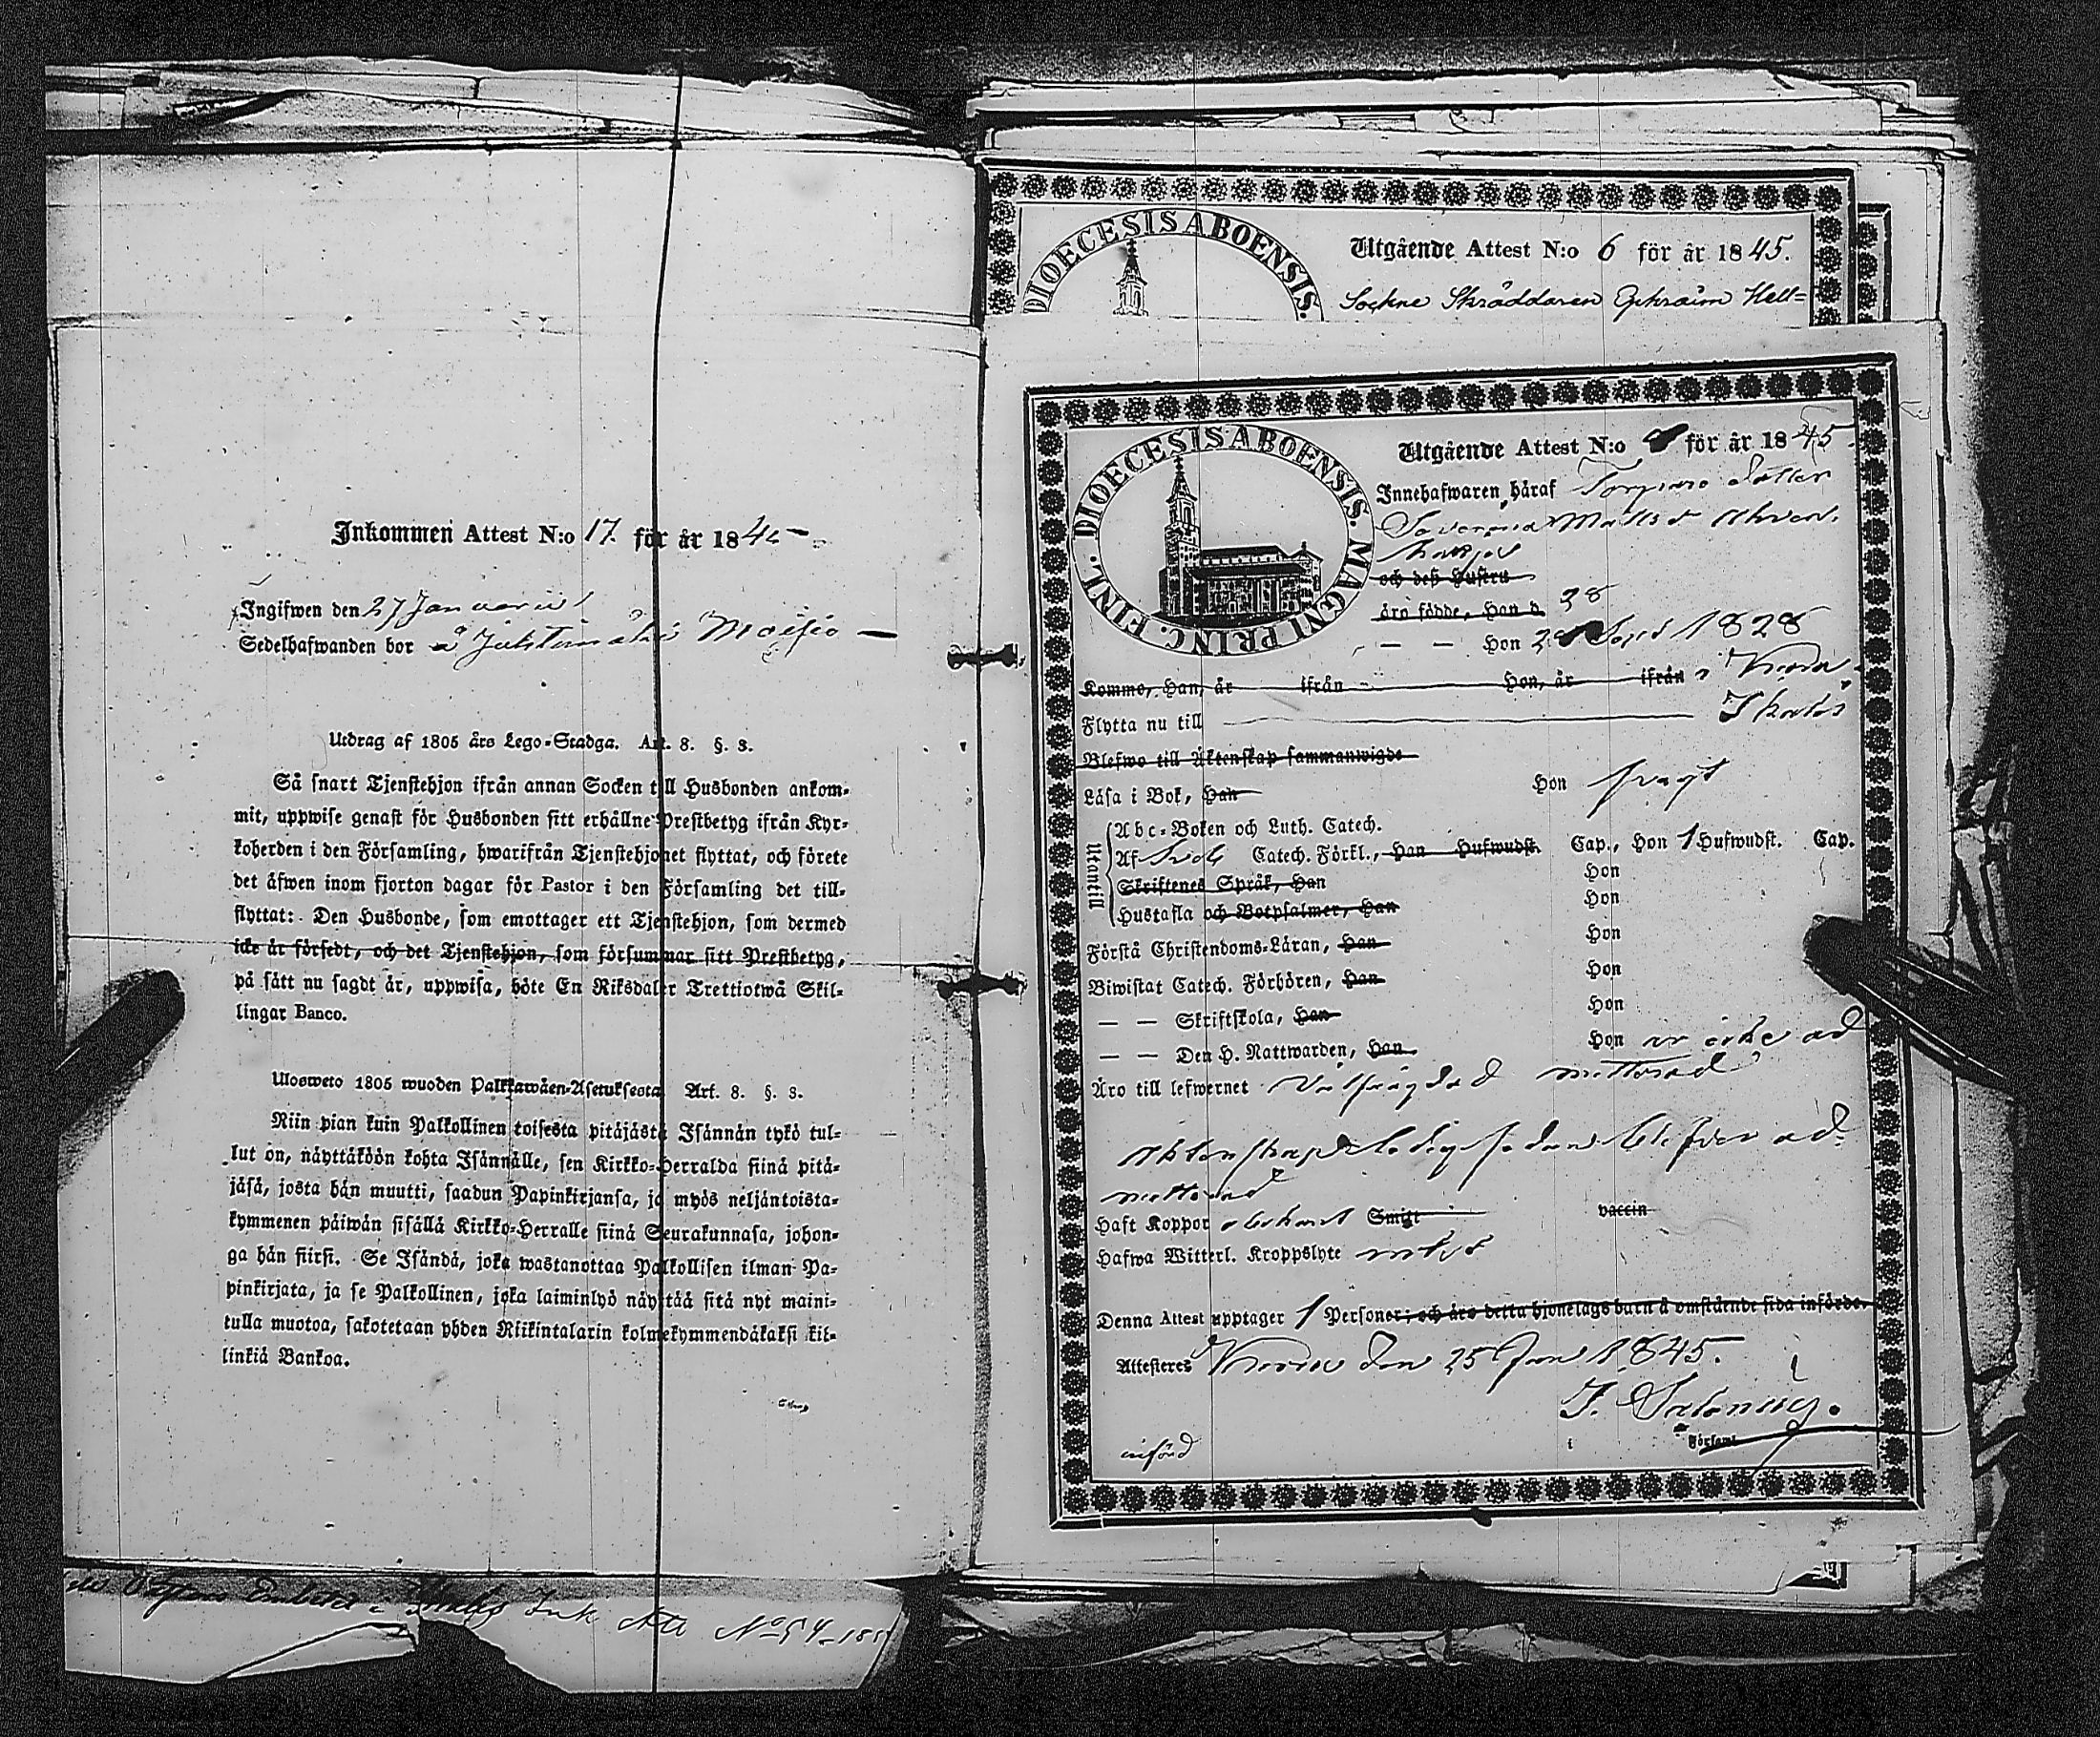 Inkommen Attest N:o 17. för år 184
Ingifwen den 27 Januarii
Sedelhafwanden bor å
Utdrag af 1805 års Lego-Stadga. Art. 8. §. 3.
Så snart Tjenstehjon ifrån annan Socken till Husbonden ankom-
mit, uppwise genast för Husbonden sitt erhållne Prestbetyg ifrån Kyr-
koherden i den Församling, hwarifrån Tjenstehjonet flyttat, och förete
det äfwen inom fjorton dagar för Pastor i den Församling det till-
flyttat: Den Husbonde, som emottager ett Tjenstehjon, som dermed
icke är försedt, och det Tjenstehjon, som försummar sitt Prestbetyg,
på sätt nu sagdt är, uppwisa, böte En Riksdaler Trettiotwå Skil-
lingar Banco.
Ulosweto 1805 wuoden Palkkawäen-Asetuksesta Art. 8. §. 3.
Niin pian kuin Palkollinen toisesta pitäjästä Isännän tykö tul-
lut on, näyttäköön kohta Isännälle, sen Kirkko-Herralda siinä pitä-
jäsä, josta hän muutti, saadun Papinkirjansa, ja myös neljäntoista-
kymmenen päiwän sisällä Kirkko-Herralle siinä Seurakunnasa, johon-
ga hän siirsi. Se Isändä, joka wastanottaa Palkollisen ilman Pa-
pinkirjata, ja se Palkollinen, joka laiminlyö näyttää sitä nyt maini-
tulla muotoa, sakotetaan yhden Riikintalarin kolmekymmendäkaksi kil-
linkiä Bankoa.
Ink Att No 54 185
DIOECESIS ABOENSIS.
Utgående Attest N:o 6 för år 1845.
Sockne Skräddaren Ephraim Hell=
DIOECESIS ABOENSIS. MAGNI PRINC. FINL.
Utgående Attest N:o för år 1845
Innehafwaren häraf Torpare Dotter
Matts
och deß Hustru
äro födde, Han d. 28
— — Hon Sept 1828
Komme, Han, år ifrån Hon, år ifrån
Flytta nu till Ikalis
Blefwo till Äktenskap sammanwigde
Läsa i Bok, Han Hon svagt
Utantill
Abc-Boken och Luth. Catech.
Af Sveb Catech. Förkl., Han Hufwudst. Cap., Hon 1 Hufwudst. Cap.
Skriftenes Språk, Han Hon
Hustafla och Botpsalmer, Han Hon
Förstå Christendoms-Läran, Han Hon
Biwistat Catech. Förhören, Han Hon
— — Skriftskola, Han Hon
— — Den H. Nattwarden, Han Hon är icke ad
Äro till lefwernet Välfrägdad mitterad
Äktenskap ledig så dan blifver ad=
mitterad
Haft Koppor Smitt vaccin
Hafwa Witterl. Kroppslyte
Denna Attest upptager 1 Personer; och äro detta hjonelags barn å omstående sida införde.
Attesteres den 25 Jan 1845.
J. Salonius.
i Församl.
införd